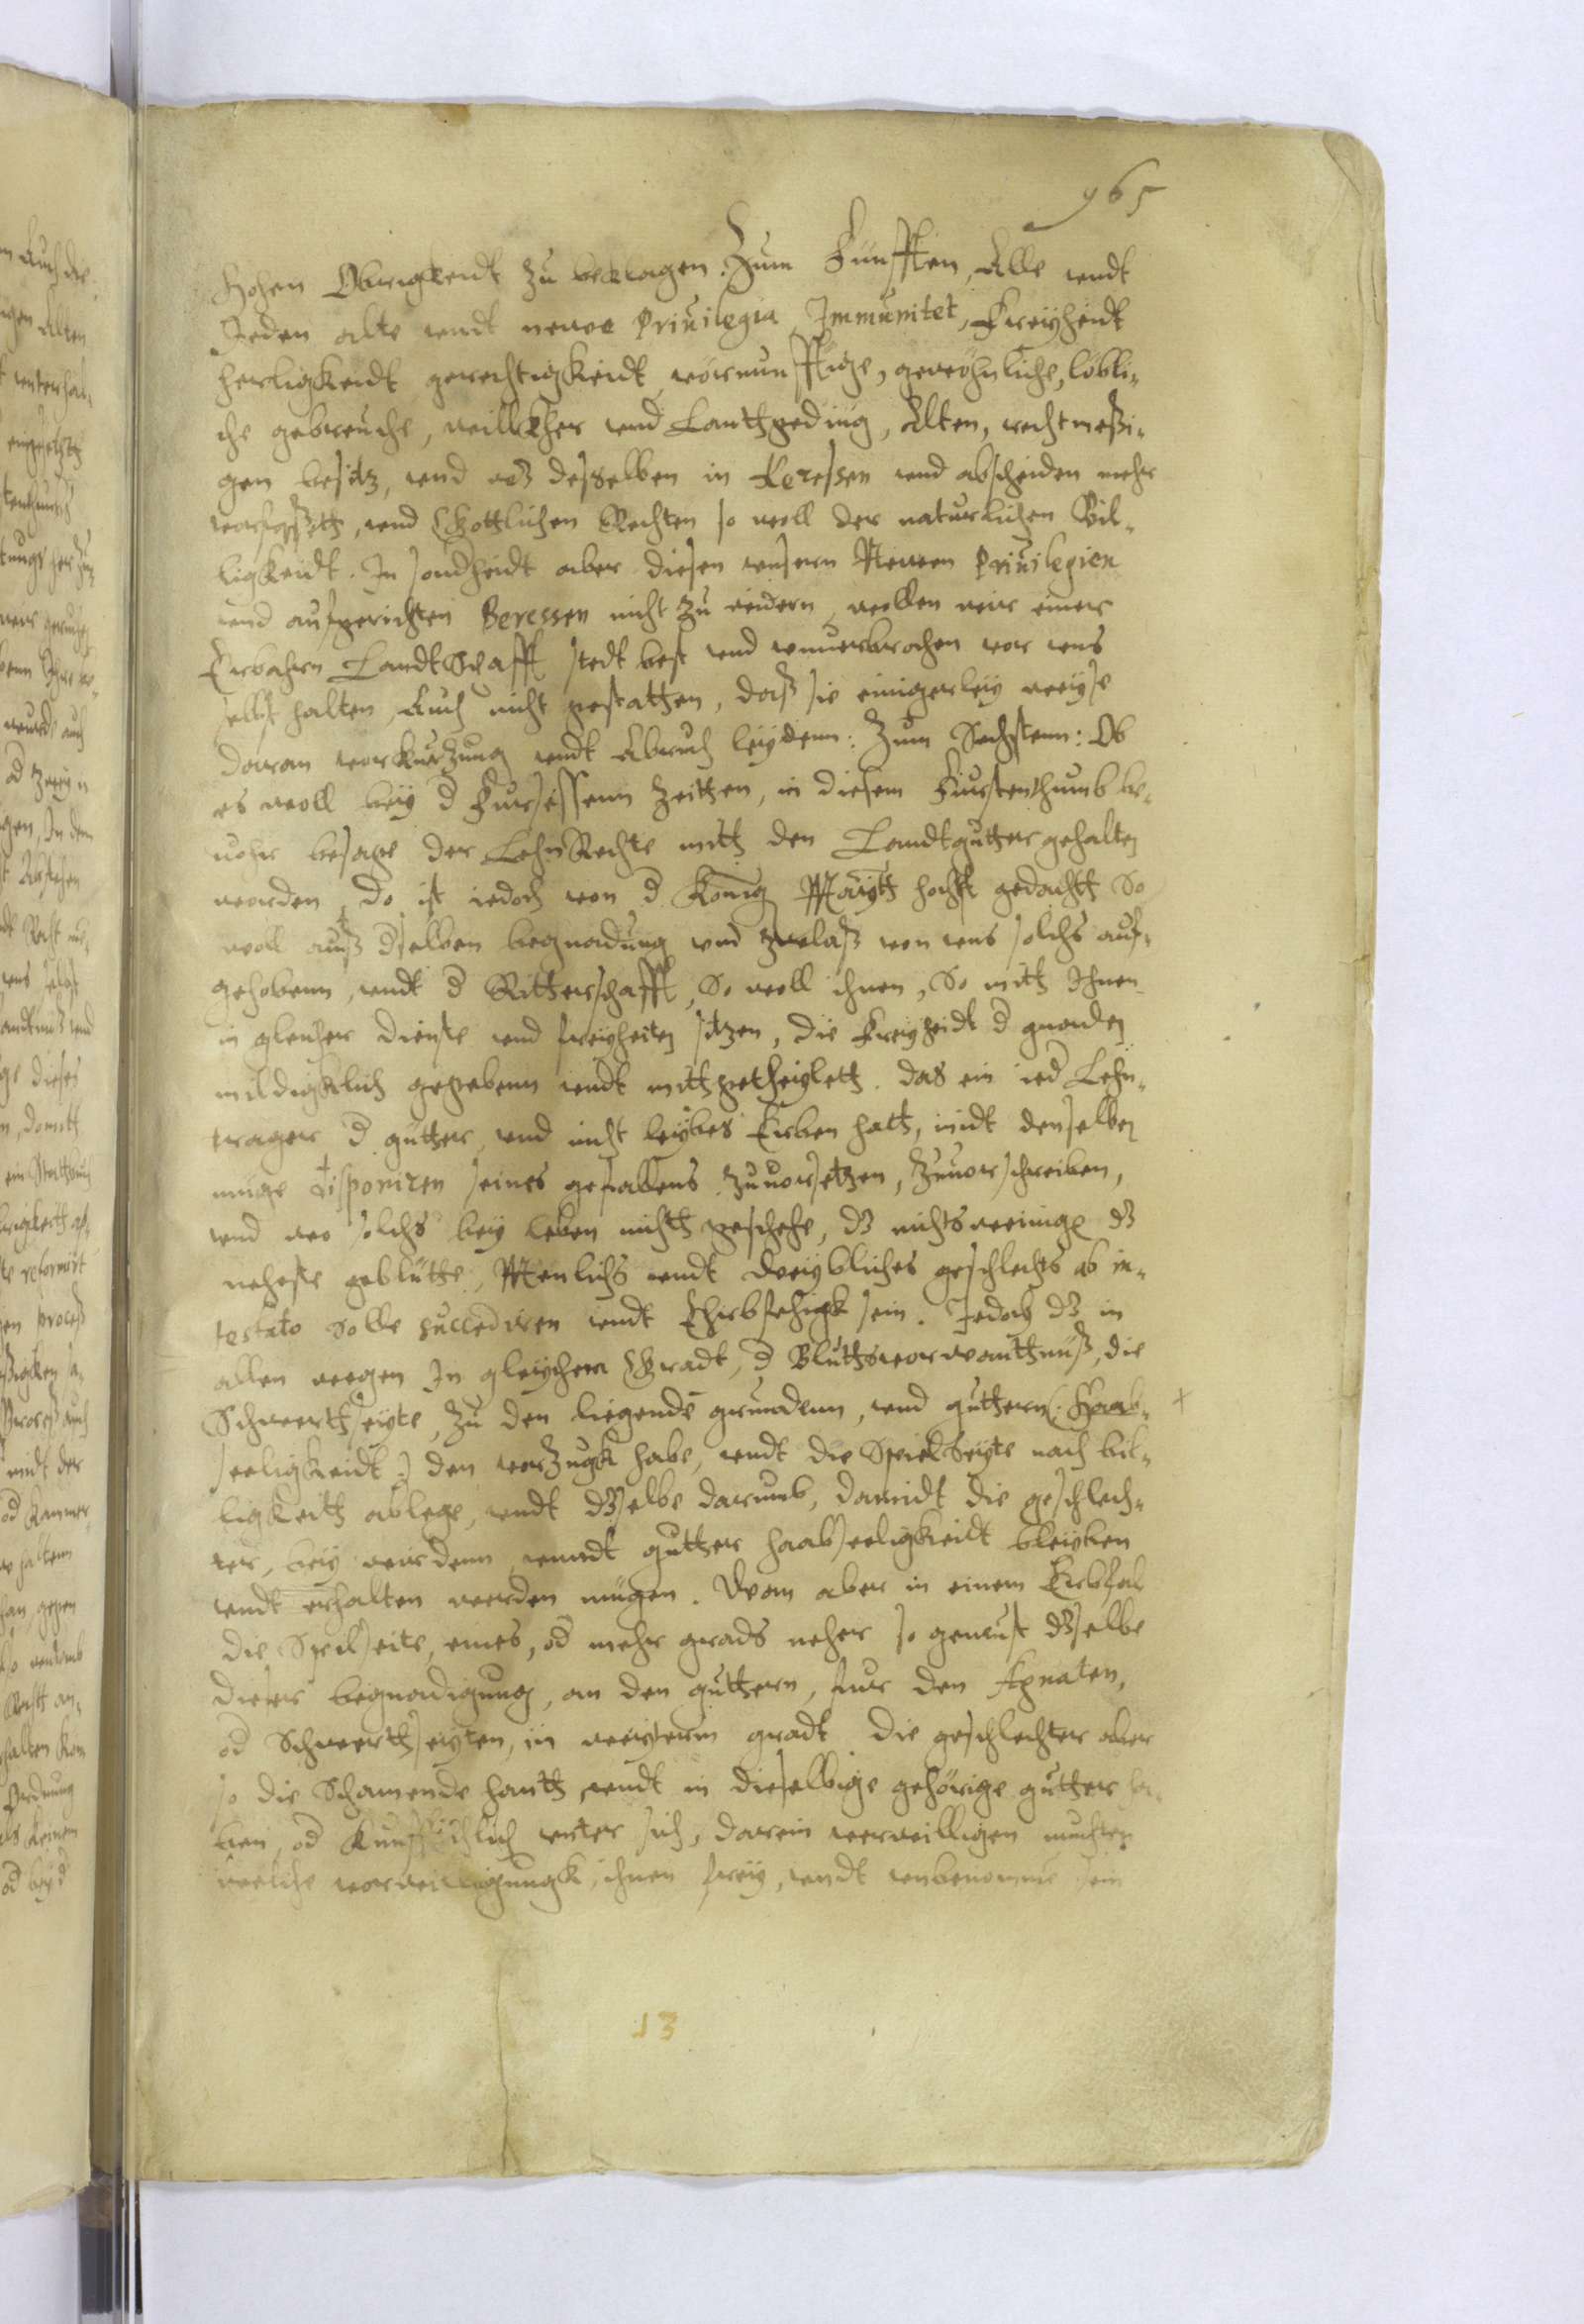 965
Hohen Obrigkeidt zu beclagen. Zum Fünfften, Alle undt
Jeden alte undt newe Priuilegia Immunitet, Freyheidt
herligkeidt gerechtigkeidt vörnunfftige, gewöhnliche, löbli-
che gebreuche, willkher und Lanthgeding, Alten, rechtmeßi-
gen besitz, und desselben in Recessen und abscheiden mehr
vorfasseth, und Gottlichen Rechten so woll der naturlichen Bil-
ligkeidt. In sondheidt aber diesen unsern Newen Priuilegien
und aufgerichten Recessen nicht zu widern, wollen wir einer
Erbahrn Landtschafft stedt vest und unuerbrochen vor uns
selbst halten, Auch nicht gestatten, daß sie einigerley weyse
daran vorkurtzung undt Abbruch leydenn: Zum Sechstenn: Ob
es woll bey d Zeitten, in diesem Fürstenthumb be-
uohr besage der LehnRechte mitt den Landtgutter gehalten
worden, do ist iedoch von d König Maytt hochst gedachtt So
woll auß dselben begnadung und Zulaß von uns solchs auf-
gehobenn, undt d Ritterschafft, So woll ihnen, So mitt Ihnen
in gleicher dienste und freyheiten sitzen, die Freyheidt d gnaden
mildigklich gegebenn undt mittgetheylett. das ein ied Lehn-
trager d gutter, und nicht leybes Erben hatt, midt denselben
muge disponiren seines gefallens zuuorsetzen, Zuuorschreiben,
und wo solchs bey leben nichtt geschehe, dz nichtsweinige dz
neheste geblutte, Menlichs undt Weyblichs geschlechts ab in-
testato solle succediren undt Ehrbfehigk sein. Jedoch dz in
allen wegen In gleychem Gradt, d Bluttsvorwanttnüß, die
Schwertt seyte, zu den liegende grundenn, und guttern (: Haab- +
seeligkeidt :) den vorzugk habe, undt die Spiel Seyte nach bil-
ligkeitt ablege, undt dzselbe darumb, damidt die geschlech-
ter, bey wirdenn unndt gutter haabseeligkeidt bleyben
undt erhalten werden mügen. Wan aber in einem Erbfal
die Spielseite, eines, od mehr grads neher so geneust dzselbe
dieser begnadigung, an den guttern, fur den Agnaten,
od Schwerttseyten, in weyterm gradt die geschlechter aber
so die Sahmende hantt undt in dieselbige gehörige gutter ha-
ben, od Kunfftichlich unter sich, darein verwilligen muchten
welche vorwilligungk, ihnen frey, undt unbenomme sein
13